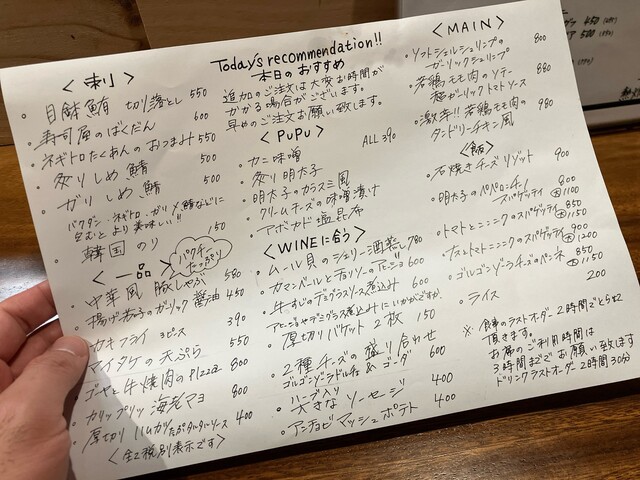 Today's recommendation!!
本日のおすすめ
追加のご注文は大変お時間が
かかる場合がございます。
早めのご注文お願い致します。
<刺し>
・目鉢鮪 切り落とし 550
・寿司屋のばくだん 600
・ネギトロたくあんのおつまみ 550
・炙りしめ鯖 500
・ガリしめ鯖 500
バクダン・ネギトロ・ガリ〆鯖などに
包むとより美味しい!!
・韓国のり 150
<一品>
パクチーたっぷり
・中華風 豚しゃぶ 580
・揚げ茄子のガーリック醤油 450
・カキフライ 3ピース 390
・マイタケの天ぷら 550
・ゴーヤと牛焼肉のPizza 800
・カリップリッ海老マヨ 800
・厚切りハムカツたぷタルタルソース 400
<全て税別表示です>
<PuPu>
ALL 390
・カニ味噌
・炙り明太子
・明太子のガラス三風
・クリームチーズの味噌漬け
・アボカド塩昆布
<WINEに合う>
・ムール貝のシェリー酒蒸し 780
・カマンベールとチョリソーのアヒージョ 600
・牛すじのデミグラスソース煮込み 600
アヒージョやデミグラス煮込みにいかがですか
・厚切りバケット2枚 150
・2種チーズの盛り合わせ 600
ゴルゴンゾーラドルチェ & ゴーダ
・ハーブ入り
大きなソーセージ 400
・アンチョビマッシュポテト 400
<MAIN>
・ソフトシェルシュリンプの
ガーリックシュリンプ 800
・若鶏モモ肉のソテー
極ガーリックトマトソース 880
・激辛!! 若鶏モモ肉の
タンドリーチキン風 980
<飯>
・石焼きチーズリゾット 900
・明太子のペペロンチーノ
スパゲッティ 800
大1100
・トマトとニンニクのスパゲッティ 850
大1150
・ナスとトマトニンニクのスパゲッティ 900
大1200
・ゴルゴンゾーラチーズのペンネ 850
大1150
・ライス 200
※食事のラストオーダー2時間でとらせて
頂きます。
お席のご利用時間は
3時間まででお願い致します
ドリンクラストオーダー2時間30分